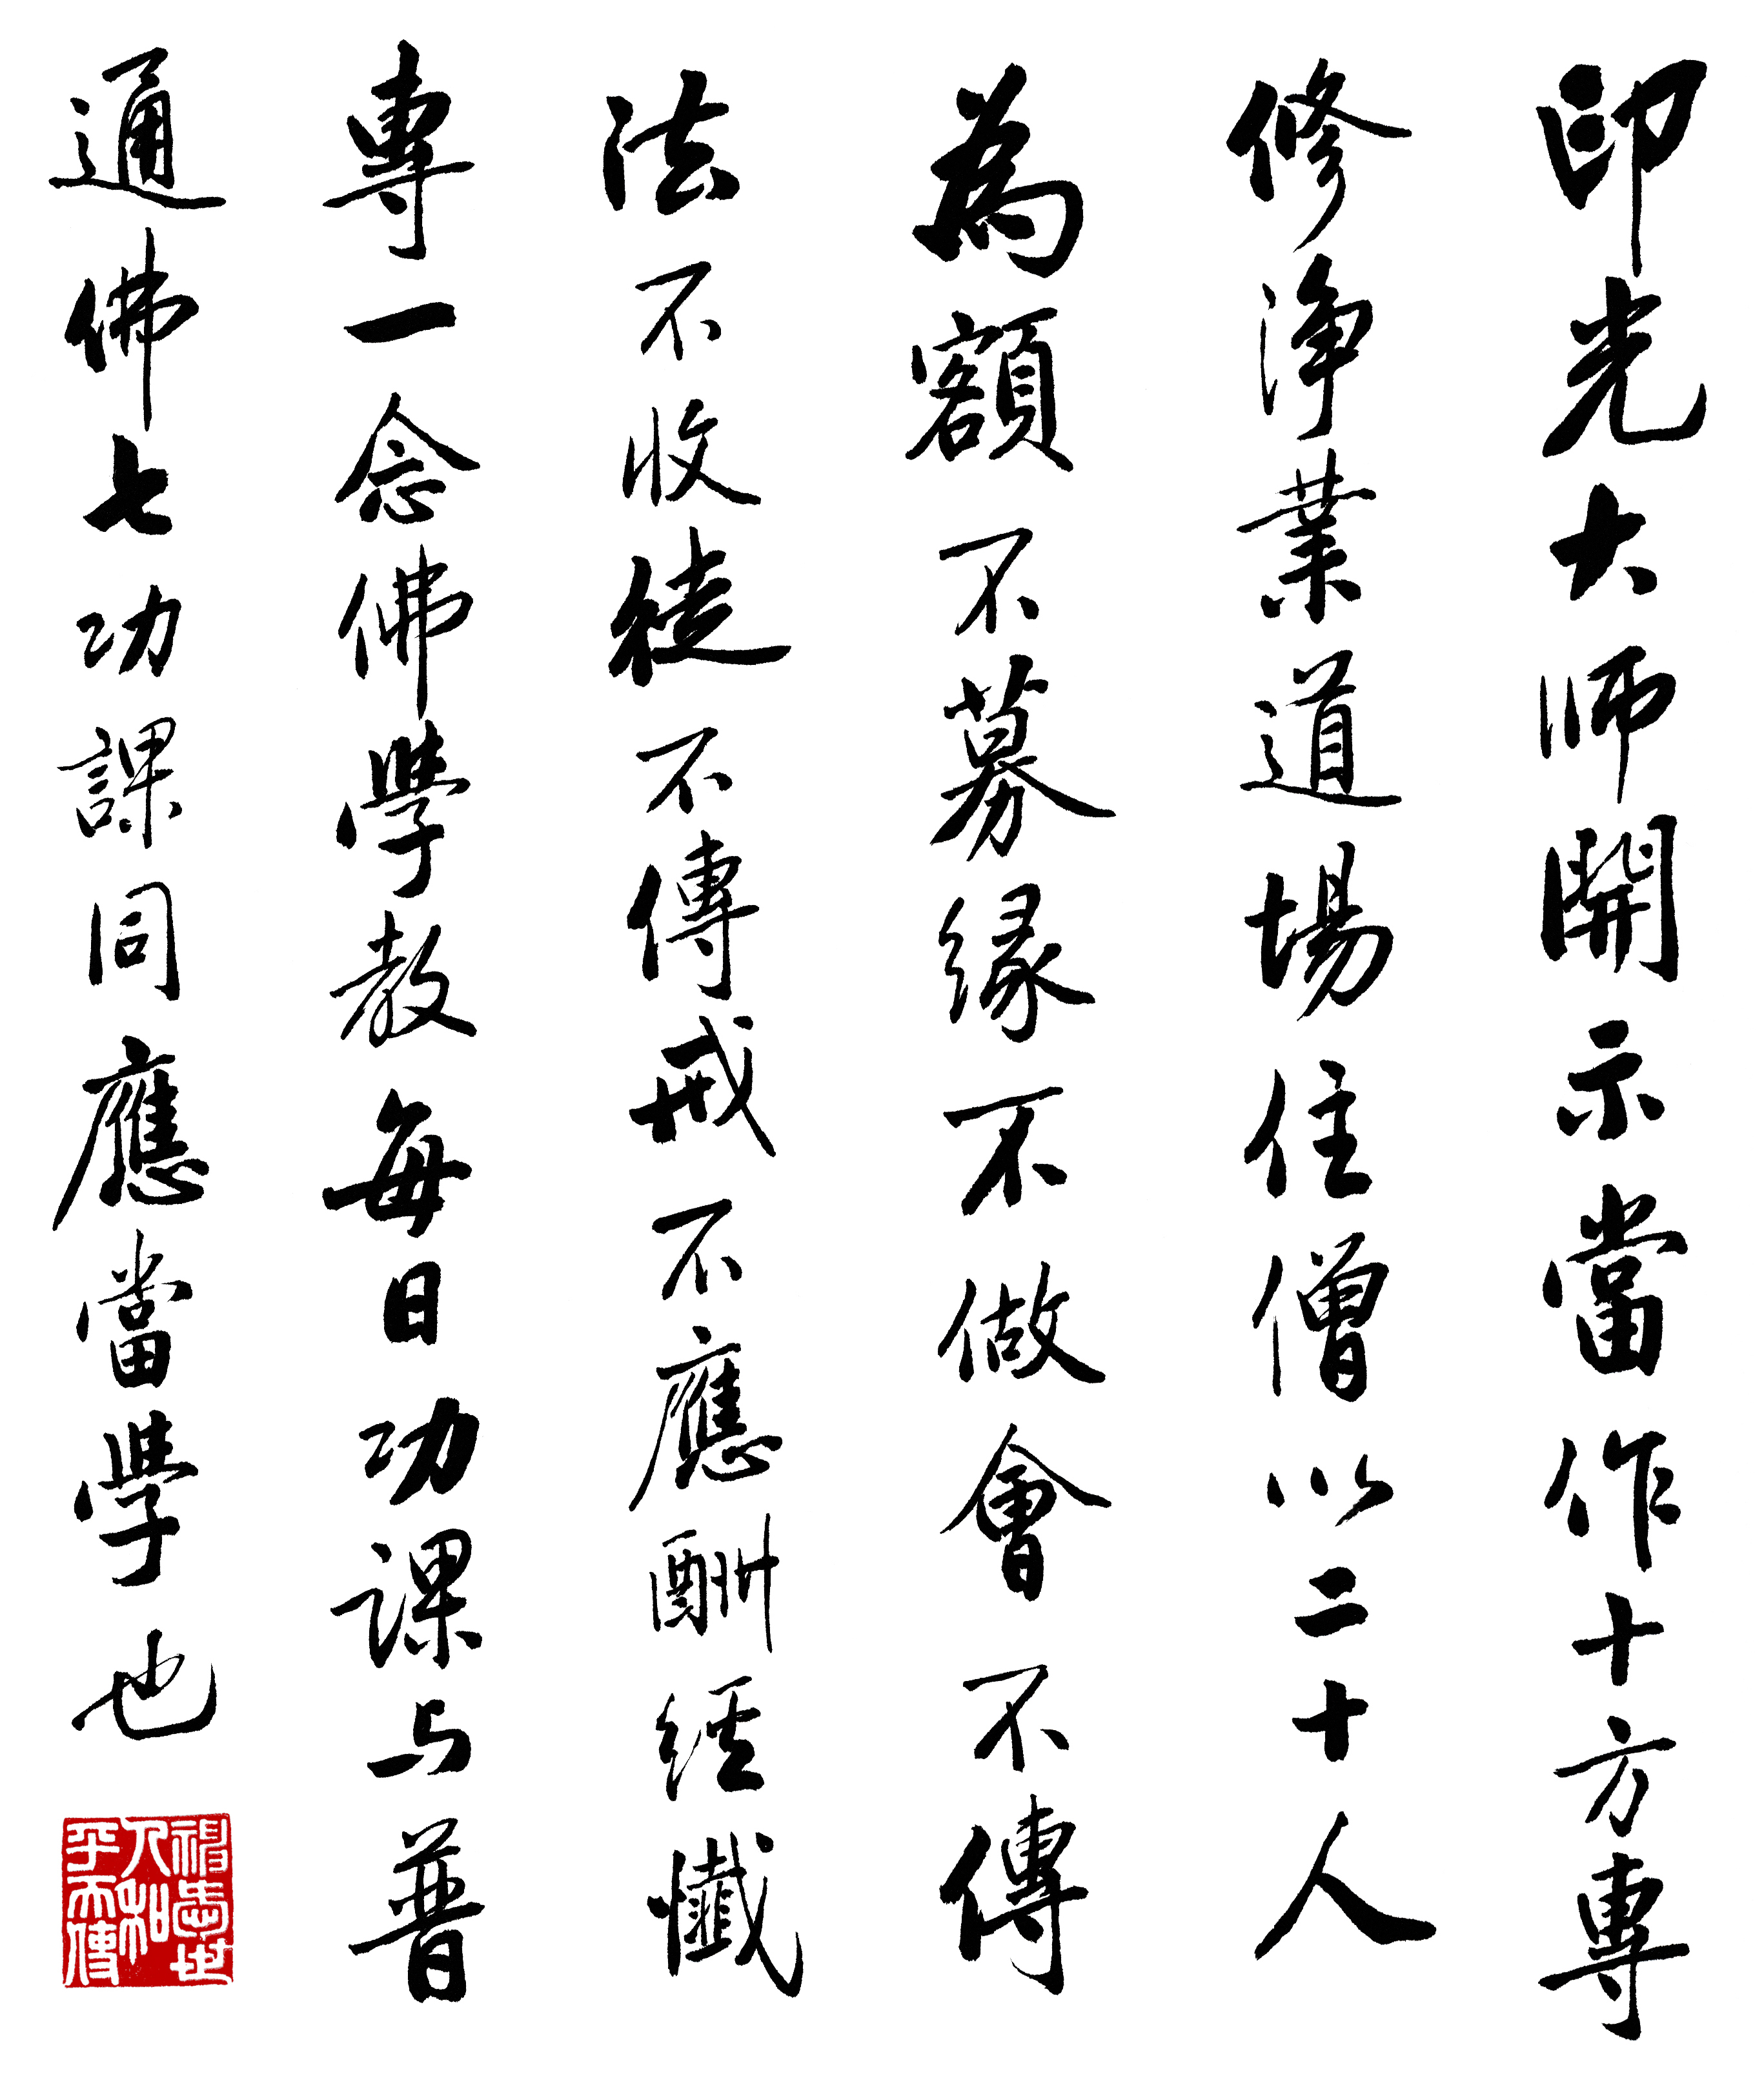 印光大师開示當作十方專
修淨業道場住僧以二十人
為額不募緣不做會不傳
法不收徒不傳戒不應酬經懺
專一念佛學教每日功課与普
通佛七功課同應當學也